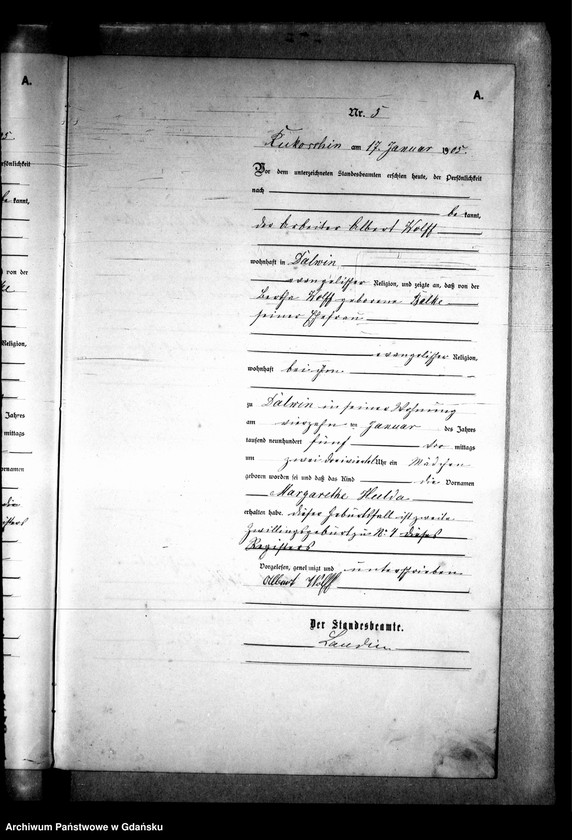 A.
A.
Nr. 5
Kukoschin am 17. Januar 1905.
Vor dem unterzeichneten Standesbeamten erschien heute, der Persönlichkeit
nach
be kannt,
der Arbeiter Albert Wolff
wohnhaft in Dalwin
evangelischer Religion, und zeigte an, daß von der
Bertha Wolff geborene Belke
seiner Ehefrau
evangelischer Religion,
wohnhaft bei ihm
zu Dalwin in seiner Wohnung
am vierzehn ten Januar des Jahres
tausend neunhundert fünf Vor mittags
um zwei dreiviertel Uhr ein Mädchen
geboren worden sei und daß das Kind die Vornamen
Margarethe Hulda
erhalten habe. dieser Geburtsfall ist zweite
Zwillingsgeburt zu Nr. 4 dieses
Registers
Vorgelesen, genehmigt und unterschrieben
Albert Wolff
Der Standesbeamte.
Archiwum Państwowe w Gdańsku